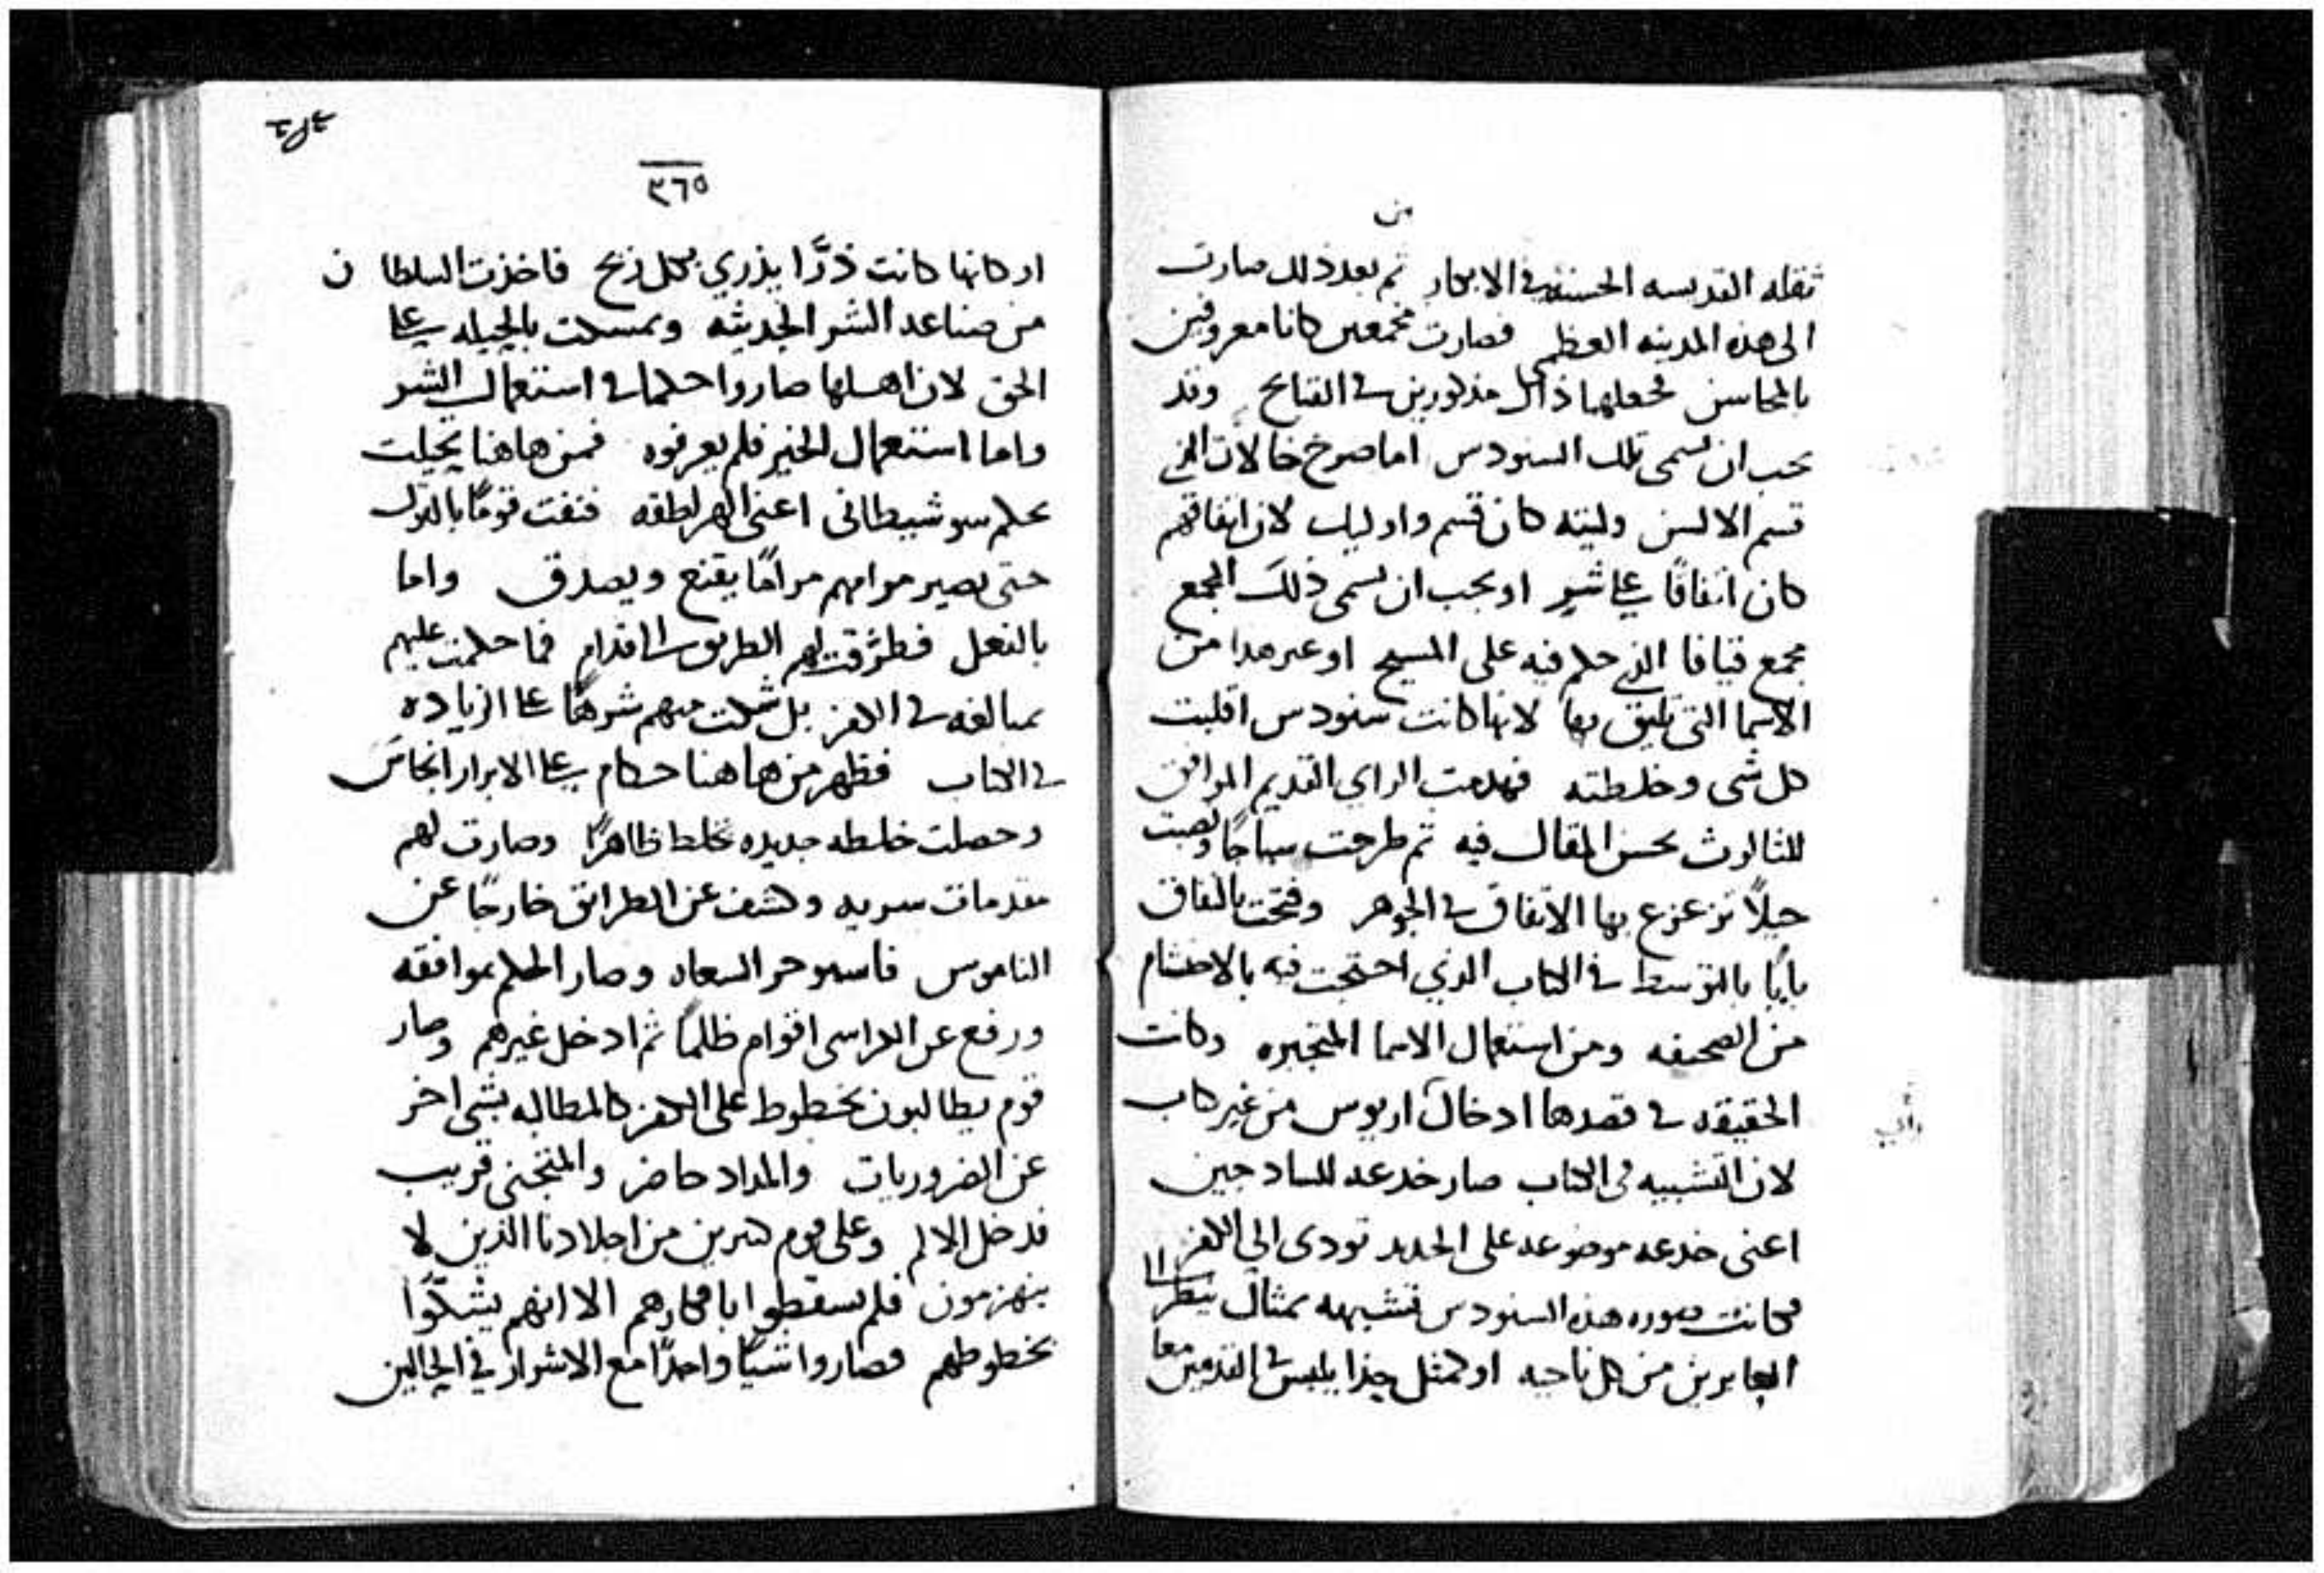 من
ثقله القديسه الحسنة في الابكار ثم بعد ذلك صارت
الى هذه المدينه العظمى فصارت مجمعين كانا معروفين
بالمحاسن فجعلهما ذاك مذكورين في القبايح وقد
يجب ان تسمى تلك السنودس اما صرح خالان الذي
قسم الالسن وليته كان قسم واوليك لان اتفاقهم
كان اتفاقًا على شر او يجب ان تسمى ذلك المجمع
مجمع قيافا الذي حكم فيه على المسيح او غير هذا من
الاسما التي تليق بها لانها كانت سنودس اقلبت
كل شي وخلطته فهدمت الراي القديم الموافق
للثالوث بحسن المقال فيه ثم طرحت سياجًا ونصبت
حيلًا تزعزع بها الاتفاق في الجوهر وفتحت بالنفاق
بابًا بالتوسط في الكتاب الذي احتجت فيه بالاحتشام
من الصحيفه ومن استعمال الاسما المتجبره وكانت
الحقيقه في قصدها ادخال اريوس من غير كتاب
لان التشبيه في الكتاب صار خدعه للسادجين
اعنى خدعه موضوعه على الحديد تودى الي الكفر
فكانت صوره هذه السنودس تشبيهه بمثال ينظر الى
العابرين من كل ناحيه او كمثل حذا يلبس في القدمين معا
٣٦٥
او كانها كانت ذرًّا يذري بكل ريح فاخذت السلطان
من صناعه الشر الحديثه وتمسكت بالحيله على
الحق لان اهلها صاروا حكما في استعمال الشر
واما استعمال الخير فلم يعرفوه فمن هاهنا تحيلت
بحكم سو شيطاني اعنى الهراطقه فنفت قومًا بالقول
حتى يصير مرامهم مرامًا يقنع ويصدق واما
بالفعل فطرّقت لهم الطريق الى اقدام فما حكمت عليهم
بمبالغه في الكفر بل شكت منهم شرهًا على الزياده
في الكتاب فظهر من هاهنا حكام على الابرار انجاس
وحصلت خلطه جديده تخلط ظاهرًا وصارت لهم
مقدمات سريه وكشف عن الطرائق خارجًا عن
الناموس وصار الحكم بموافقه
ورفع عن الكراسي اقوام ظلمًا ثم ادخل غيرهم وصار
قوم يطالبون بخطوط على الكفر كالمطالبه بشي اخر
عن الضروريات والمداد حاضر والمتجني قريب
فدخل الالم وعلى قوم كثيرين من اجلادنا الذين لا
ينهزمون فلم يسقطوا بافكارهم الا انهم يشكّوا
بخطوطهم فصاروا شيًا واحدًا مع الاشرار في الحالين